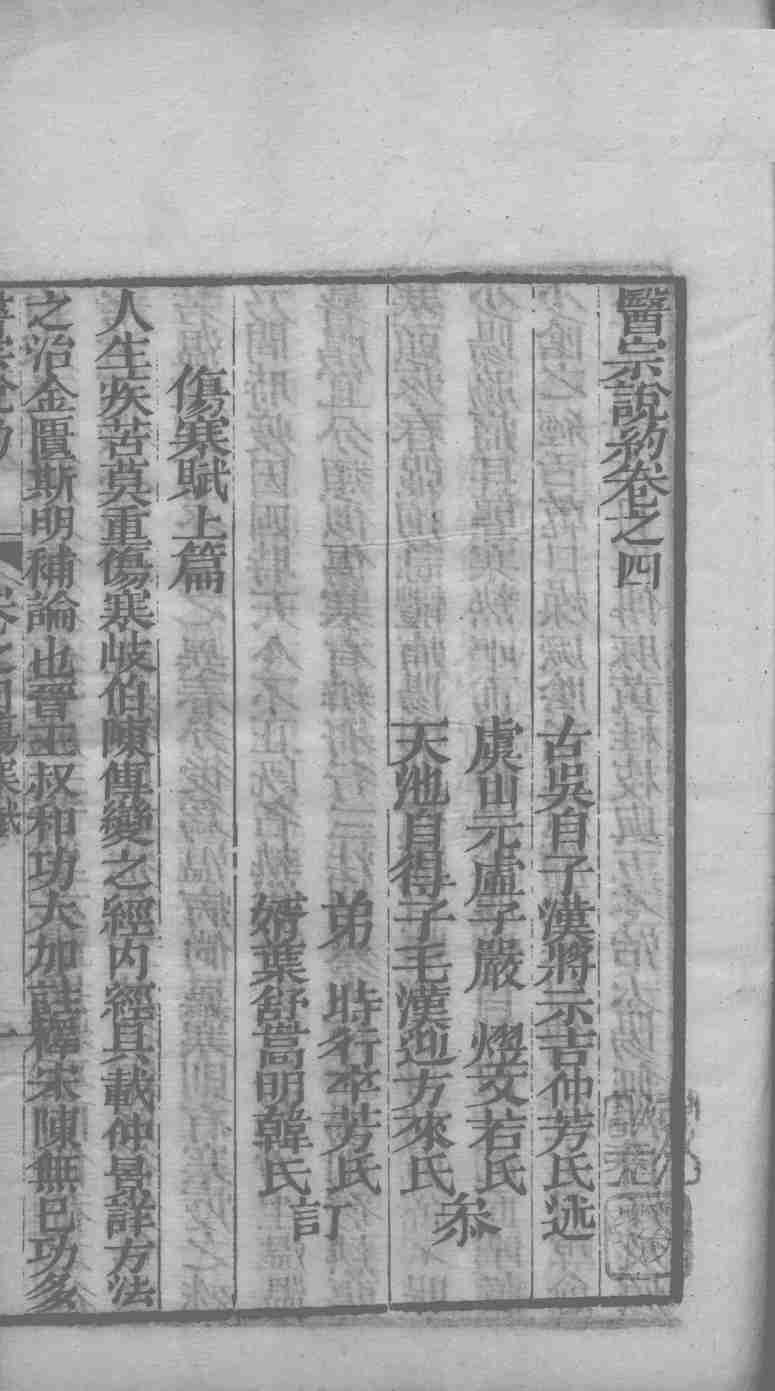 醫宗說約卷之四
古吳自了漢將示吉仲芳氏述
虞山元虛子嚴 熠文若氏
天池自得子毛漢逈方來氏
叅
弟 時行卒芳氏
婿葉舒嵩明韓氏
訂
傷寒賦上篇
人生疾苦莫重傷寒岐伯陳傳變之經内經具載仲景詳方法
之治金匱斯明補論也晉王叔和功大加註釋宋陳無巳功多